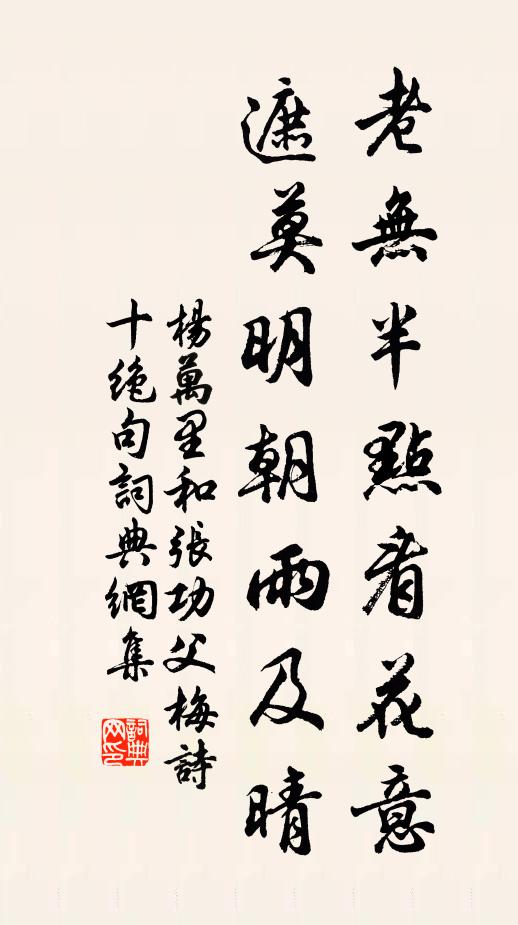 老無半點看花意
遮莫明朝雨及晴
楊萬里和張功父梅詩
十絶句詞典網集
詞典
网印